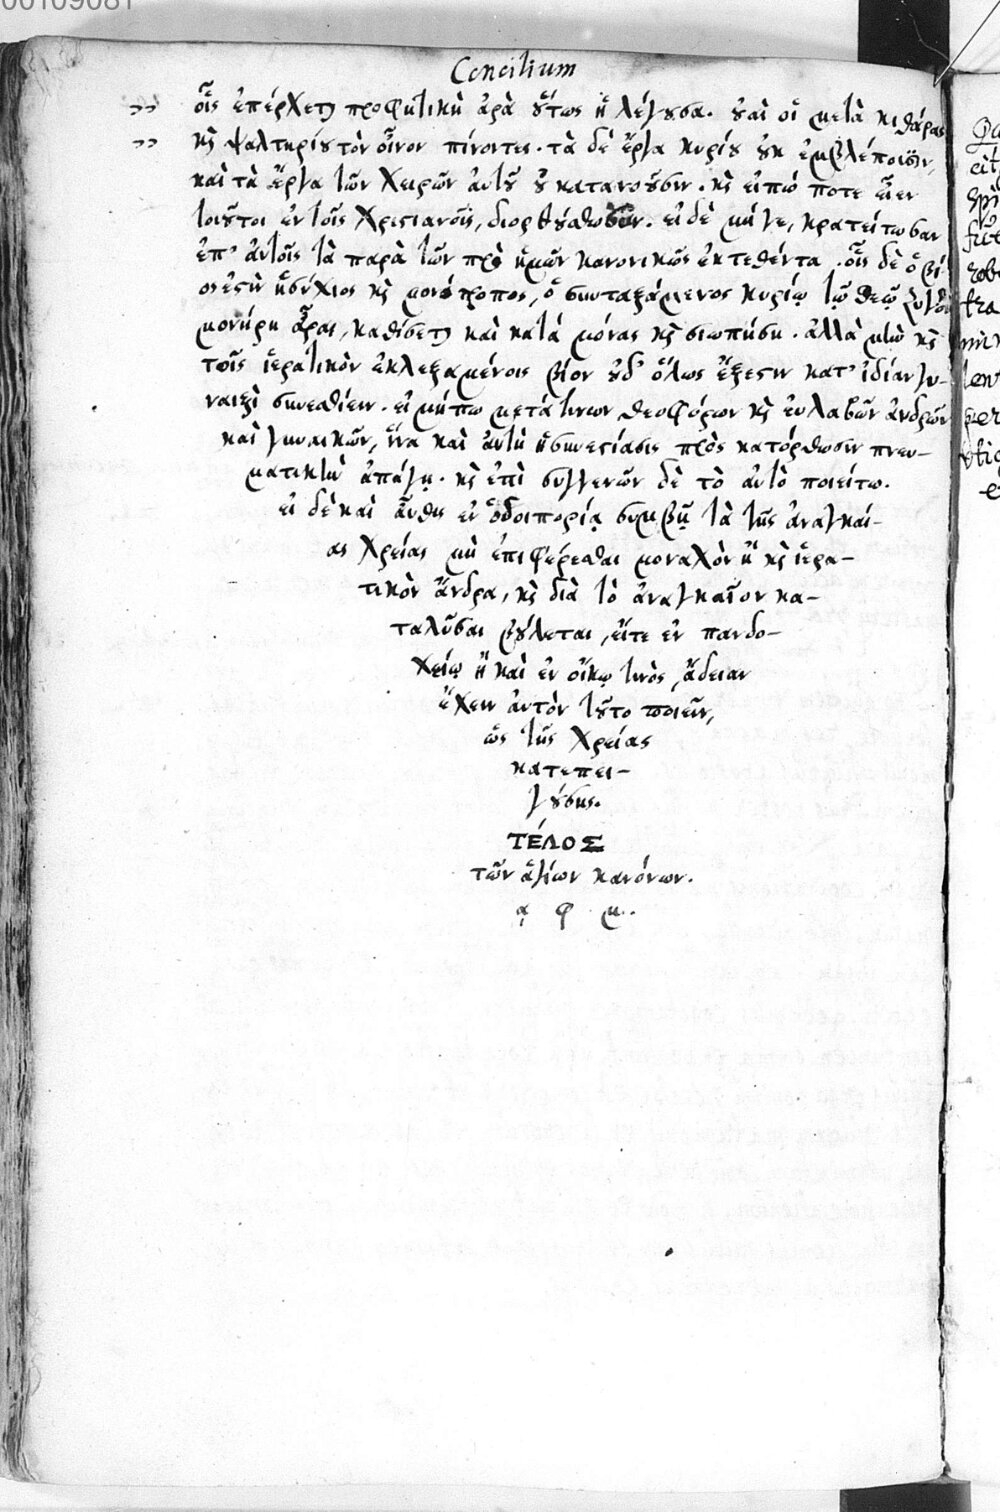 00109081
Concilium
οἷς ἐπέρχεται προφητικὴ ἀρὰ οὕτως ἡ λέγουσα. οὐαὶ οἱ μετὰ κιθάρας
καὶ ψαλτηρίου τὸν οἶνον πίνοντες. τὰ δὲ ἔργα κυρίου οὐκ ἐμβλέπουσιν,
καὶ τὰ ἔργα τῶν χειρῶν αὐτοῦ οὐ κατανοοῦσιν. καὶ εἰπώ ποτε εἶεν
τοιοῦτοι ἐν τοῖς χριστιανοῖς, διορθούσθωσαν. εἰ δὲ μήγε, κρατείτωσαν
ἐπ' αὐτοῖς τὰ παρὰ τῶν πρὸ ἡμῶν κανονικῶς ἐκτεθέντα. οἷς δὲ ὁ βί-
ος ἐστὶν ἡσύχιος καὶ μονότροπος, ὁ συνταξάμενος κυρίῳ τῷ θεῷ ζυγὸν
μονήρη ἆραι, καθίσεται καὶ κατὰ μόνας καὶ σιωπήσῃ. ἀλλὰ μὴν καὶ
τοῖς ἱερατικὸν ἐκλεξαμένοις βίον οὐδ' ὅλως ἔξεστιν κατ' ἰδίαν γυ-
ναιξὶ συνεσθίειν. εἰ μήπω μετά τινων θεοφόρων καὶ εὐλαβῶν ἀνδρῶν
καὶ γυναικῶν, ἵνα καὶ αὐτὴ ἡ συνεστίασις πρὸς κατόρθωσιν πνευ-
ματικὴν ἀπάγῃ. καὶ ἐπὶ συγγενῶν δὲ τὸ αὐτὸ ποιείτω.
εἰ δὲ καὶ αὖθις ἐν ὁδοιπορίᾳ συμβῇ τὰ τῆς ἀναγκαί-
ας χρείας μὴ ἐπιφέρεσθαι μοναχὸν ἢ καὶ ἱερα-
τικὸν ἄνδρα, καὶ διὰ τὸ ἀναγκαῖον κα-
ταλῦσαι βούλεται, εἴτε ἐν πανδο-
χείῳ ἢ καὶ ἐν οἴκῳ τινὸς, ἄδειαν
ἔχειν αὐτὸν τοῦτο ποιεῖν,
ὡς τῆς χρείας
κατεπει-
γούσης.
ΤΈΛΟΣ
τῶν ἁγίων κανόνων.
α φ μ..